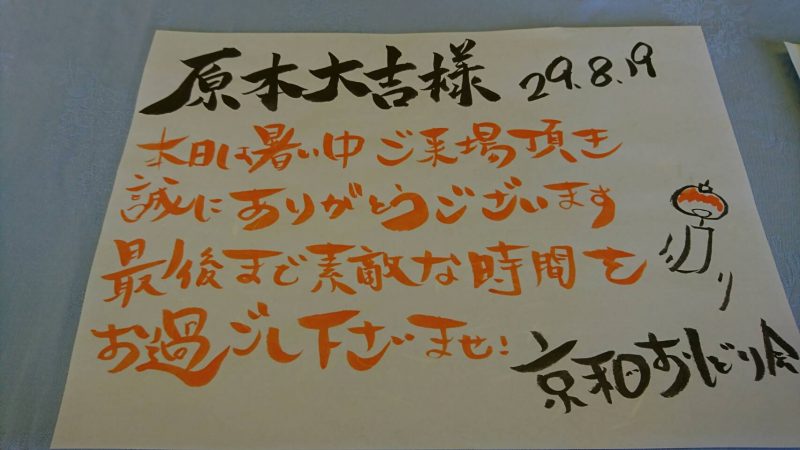 原本大吉様 29.8.19
本日は暑い中ご来場頂き
誠にありがとうございます
最後まで素敵な時間を
お過ごし下さいませ!
京和おどり会